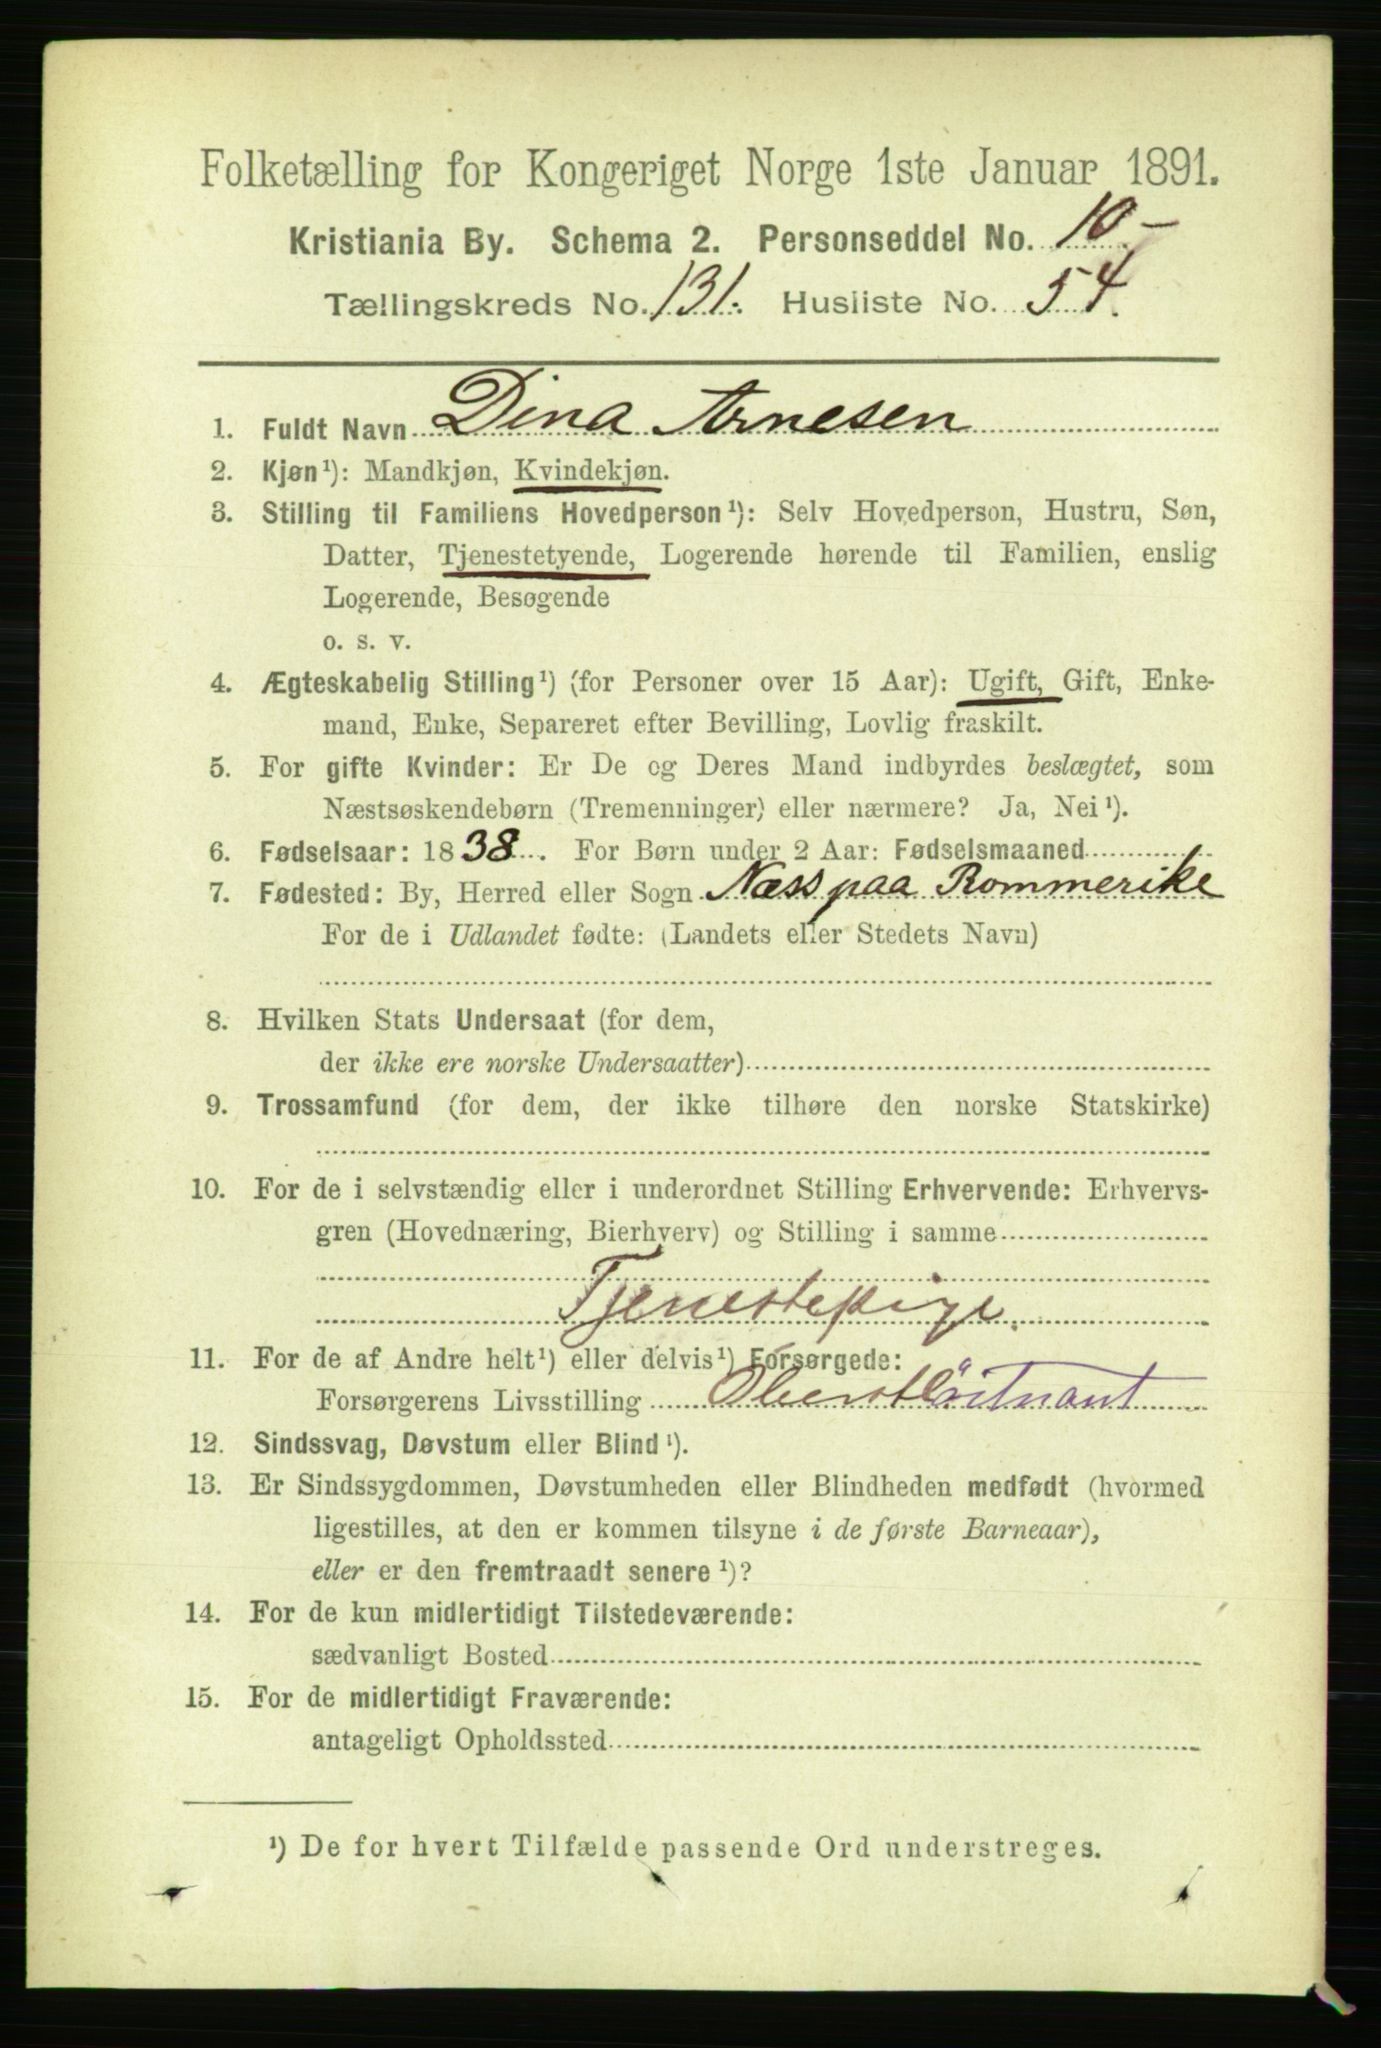 Folketælling for Kongeriget Norge 1ste Januar 1891.
Kristiania By. Schema 2. Personseddel No. 10-
Tællingskreds No. 131. Husliste No. 54.
1. Fuldt Navn Dina Arnesen
2. Kjøn¹): Mandkjøn, Kvindekjøn.
3. Stilling til Familiens Hovedperson¹): Selv Hovedperson, Hustru, Søn,
Datter, Tjenestetyende, Logerende hørende til Familien, enslig
Logerende, Besøgende
o. s. v.
4. Ægteskabelig Stilling¹) (for Personer over 15 Aar): Ugift, Gift, Enke-
mand, Enke, Separeret efter Bevilling, Lovlig fraskilt.
5. For gifte Kvinder: Er De og Deres Mand indbyrdes beslægtet, som
Næstsøskendebørn (Tremenninger) eller nærmere? Ja, Nei¹).
6. Fødselsaar: 1838. For Børn under 2 Aar: Fødselsmaaned
7. Fødested: By, Herred eller Sogn Næss paa Rommerike
For de i Udlandet fødte: (Landets eller Stedets Navn)
8. Hvilken Stats Undersaat (for dem,
der ikke ere norske Undersaatter)
9. Trossamfund (for dem, der ikke tilhøre den norske Statskirke)
10. For de i selvstændig eller i underordnet Stilling Erhvervende: Erhvervs-
gren (Hovednæring, Bierhverv) og Stilling i samme
Tjenestepige.
11. For de af Andre helt¹) eller delvis¹) Forsørgede:
Forsørgerens Livsstilling Oberstlöitnant
12. Sindssvag, Døvstum eller Blind¹).
13. Er Sindssygdommen, Døvstumheden eller Blindheden medfødt (hvormed
ligestilles, at den er kommen tilsyne i de første Barneaar),
eller er den fremtraadt senere¹)?
14. For de kun midlertidigt Tilstedeværende:
sædvanligt Bosted
15. For de midlertidigt Fraværende:
antageligt Opholdssted
¹) De for hvert Tilfælde passende Ord understreges.